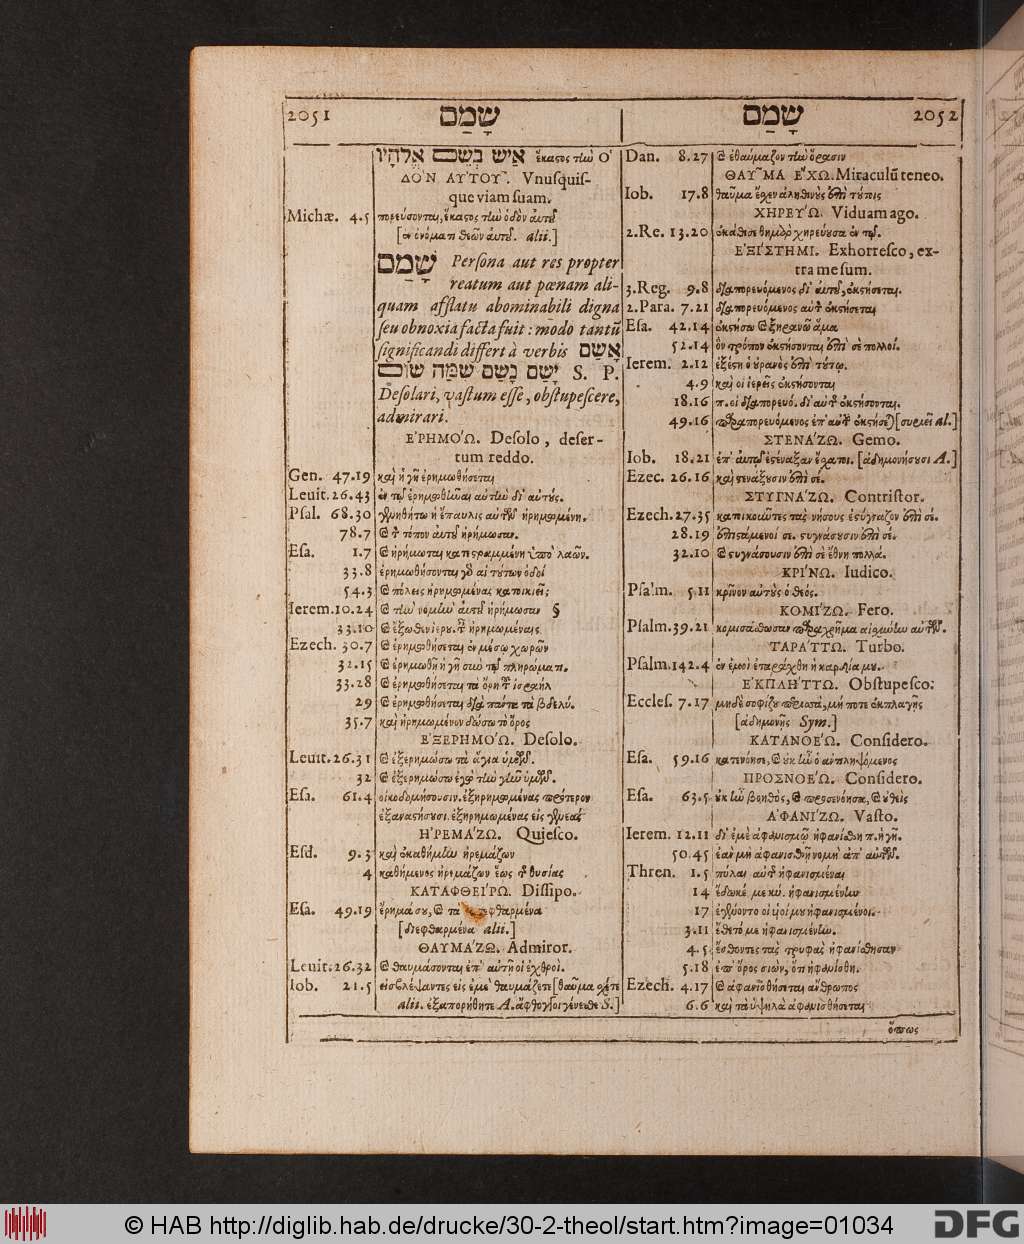 2051 שָׁמַם
אִישׁ בְּשֵׁם אֱלֹהָיו ἕκαστος τὴν Ὁ
ΔΟΝ ΑΥΤΟΥ͂. Vnusquis-
que viam suam.
Michæ. 4.5 πορεύσονται, ἕκαστος τὴν ὁδὸν αὐτοῦ
[ἐν ὀνόματι θεῶν αὐτοῦ. alii.]
שָׁמַם Persona aut res propter
reatum aut pœnam ali-
quam afflatu abominabili digna
seu obnoxia facta fuit: modò tantũ
significandi differt à verbis אָשַׁם
יָשַׁם נָשַׁם S. P.
Desolari, vastum esse, obstupescere,
admirari.
ἘΡΗΜΟΏ. Desolo, deser-
tum reddo.
Gen. 47.19 καὶ ἡ γῆ ἐρημωθήσεται
Leuit. 26.43 ἐν τῷ ἐρημωθῆναι αὐτὴν δι' αὐτούς.
Psal. 68.30 γενηθήτω ἡ ἔπαυλις αὐτῶν ἠρημωμένη.
78.7 καὶ τὸν τόπον αὐτοῦ ἠρήμωσαν.
Esa. 1.7 καὶ ἠρήμωται κατεστραμμένη ὑπὸ λαῶν.
33.8 ἐρημωθήσονται γὰρ αἱ τούτων ὁδοί
54.3 καὶ πόλεις ἠρημωμένας κατοικιεῖς
Ierem. 10.24 καὶ τὴν νομὴν αὐτοῦ ἠρήμωσαν §
33.10
Ezech. 30.7 καὶ ἐρημωθήσεται ἐν μέσῳ χωρῶν
32.15 καὶ ἐρημωθῇ ἡ γῆ σὺν τῷ πληρώματι.
33.28 καὶ ἐρημωθήσεται τὰ ὄρη τοῦ ἰσραήλ
29 καὶ ἐρημωθήσεται διὰ πάντα τὰ βδελύ.
35.7 καὶ ἠρημωμένον δώσω τὸ ὄρος
ἘΞΕΡΗΜΟΏ. Desolo.
Leuit. 26.31 καὶ ἐξερημώσω τὰ ἅγια ὑμῶν.
32 καὶ ἐξερημώσω ἐγὼ τὴν γῆν ὑμῶν.
Esa. 61.4 οἰκοδομήσουσιν. ἐξηρημωμένας πρότερον
ἐξαναστήσουσι. ἐξηρημωμένας εἰς γενεάς
ἨΡΕΜΆΖΩ. Quiesco.
Esd. 9.3 καὶ ἐκαθήμην ἠρεμάζων
4 καθήμενος ἠρεμάζων ἕως τῆς θυσίας
ΚΑΤΑΦΘΕΊΡΩ. Dissipo.
Esa. 49.19 ἔρημά σου, καὶ τὰ
[διεφθαρμένα alii.]
ΘΑΥΜΆΖΩ. Admiror.
Leuit. 26.32 καὶ θαυμάσονται ἐπ' αὐτῇ οἱ ἐχθροί.
Iob. 21.5 εἰσβλέψαντες εἰς ἐμὲ θαυμάζετε [θαῦμα σχῆτε
alii. ἐξαπορήθητε A. ἄφθογγοι γένεσθε S.]
שָׁמַם 2052
Dan. 8.27 καὶ ἐθαύμαζον τὴν ὅρασιν
ΘΑΥ͂ΜΑ ἜΧΩ. Miraculũ teneo.
Iob. 17.8 θαῦμα ἔσχεν ἀληθινοὺς ἐπὶ τούτοις
ΧΗΡΕΎΩ. Viduam ago.
2. Re. 13.20 ἐκάθισε θημὰρ χηρεύουσα ἐν τῷ.
ἘΞΊΣΤΗΜΙ. Exhorresco, ex-
tra me sum.
3. Reg. 9.8 διαπορευόμενος δι' αὐτοῦ, ἐκστήσεται.
2. Para. 7.21 διαπορευόμενος αὐτὸν ἐκστήσεται
Esa. 42.14 ἐκστήσω καὶ ξηρανῶ ἅμα
52.14 ὃν τρόπον ἐκστήσονται ἐπὶ σὲ πολλοί.
Ierem. 2.12 ἐξέστη ὁ οὐρανὸς ἐπὶ τούτῳ.
4.9 καὶ οἱ ἱερεῖς ἐκστήσονται
18.16 π. οἱ διαπορευό. δι' αὐτῆς ἐκστήσονται.
49.16 παραπορευόμενος ἐπ' αὐτὴν ἐκστήσε) [συριεῖ al.]
ΣΤΕΝΆΖΩ. Gemo.
Iob. 18.21 ἐπ' αὐτῷ ἐστέναξαν ἔσχατοι. [ἀδημονήσουσι A.]
Ezec. 26.16 καὶ στενάξουσιν ἐπὶ σέ.
ΣΤΥΓΝΆΖΩ. Contristor.
Ezech. 27.35 κατοικοῦντες τὰς νήσους ἐστύγναζον ἐπὶ σέ.
28.19 ἐπιστάμενοί σε. στυγνάσουσιν ἐπὶ σέ.
32.10 καὶ στυγνάσουσιν ἐπὶ σὲ ἔθνη πολλά.
ΚΡΊΝΩ. Iudico.
Psalm. 5.11 κρῖνον αὐτοὺς ὁ θεός.
ΚΟΜΊΖΩ. Fero.
Psalm. 39.21 κομισάσθωσαν παραχρῆμα αἰσχύνην αὐτῶν.
ΤΑΡΆΤΤΩ. Turbo.
Psalm. 142.4 ἐν ἐμοὶ ἐταράχθη ἡ καρδία μου.
ἘΚΠΛΉΤΤΩ. Obstupesco.
Eccles. 7.17 μηδὲ σοφίζου περισσά, μή ποτε ἐκπλαγῇς
[ἀδημονῇς Sym.]
ΚΑΤΑΝΟΈΩ. Considero.
Esa. 59.16 κατενόησε, καὶ οὐκ ἦν ὁ ἀντιληψόμενος
ΠΡΟΣΝΟΈΩ. Considero.
Esa. 63.5 οὐκ ἦν βοηθός, καὶ προσενόησα, καὶ οὐθεὶς
ἈΦΑΝΊΖΩ. Vasto.
Ierem. 12.11 δι' ἐμὲ ἀφανισμῷ ἠφανίσθη π. ἡ γῆ.
50.45 ἐὰν μὴ ἀφανισθῇ νομὴ ἀπ' αὐτῶν.
Thren. 1.5 πύλαι αὐτῆς ἠφανισμέναι
14 ἔδωκέ με κύ. ἠφανισμένην
17 ἐγένοντο οἱ υἱοί μου ἠφανισμένοι.
3.11 ἔθετό με ἠφανισμένην.
4.5 ἔσθοντες τὰς τρυφὰς ἠφανίσθησαν
5.18 ἐπ' ὄρος σιών, ὅτι ἠφανίσθη.
Ezech. 4.17 καὶ ἀφανισθήσεται ἄνθρωπος
6.6 καὶ τὰ ὑψηλὰ ἀφανισθήσεται
ὅπως
© HAB http://diglib.hab.de/drucke/30-2-theol/start.htm?image=01034
DFG